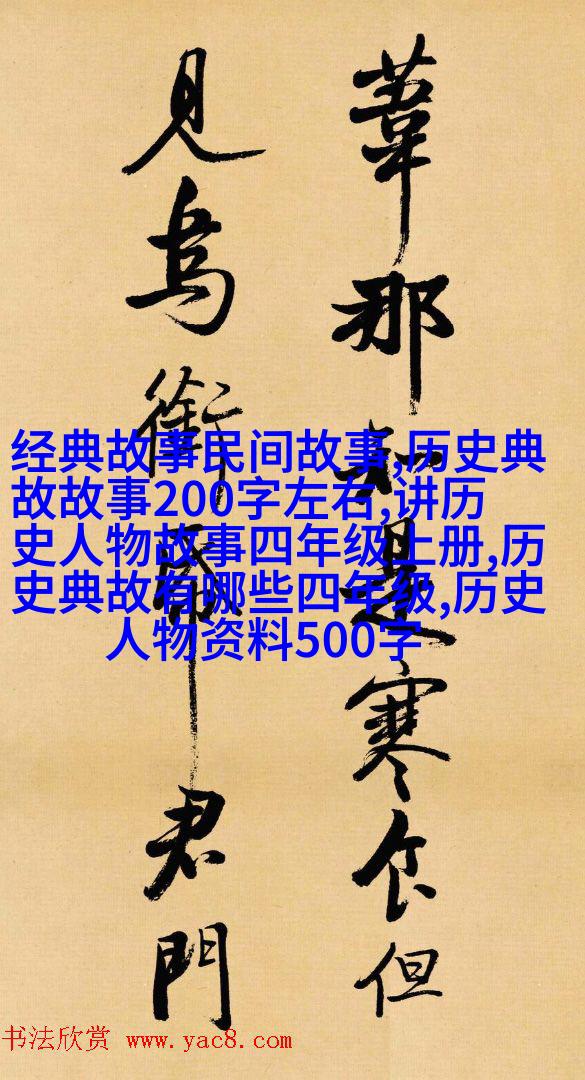 葦那知是寒食但
見烏銜帋君門
经典故事民间故事,历史典
故故事200字左右,讲历
史人物故事四年级上册,历
史典故有哪些四年级,历史
人物资料500字
书法欣赏 www.yac8.com